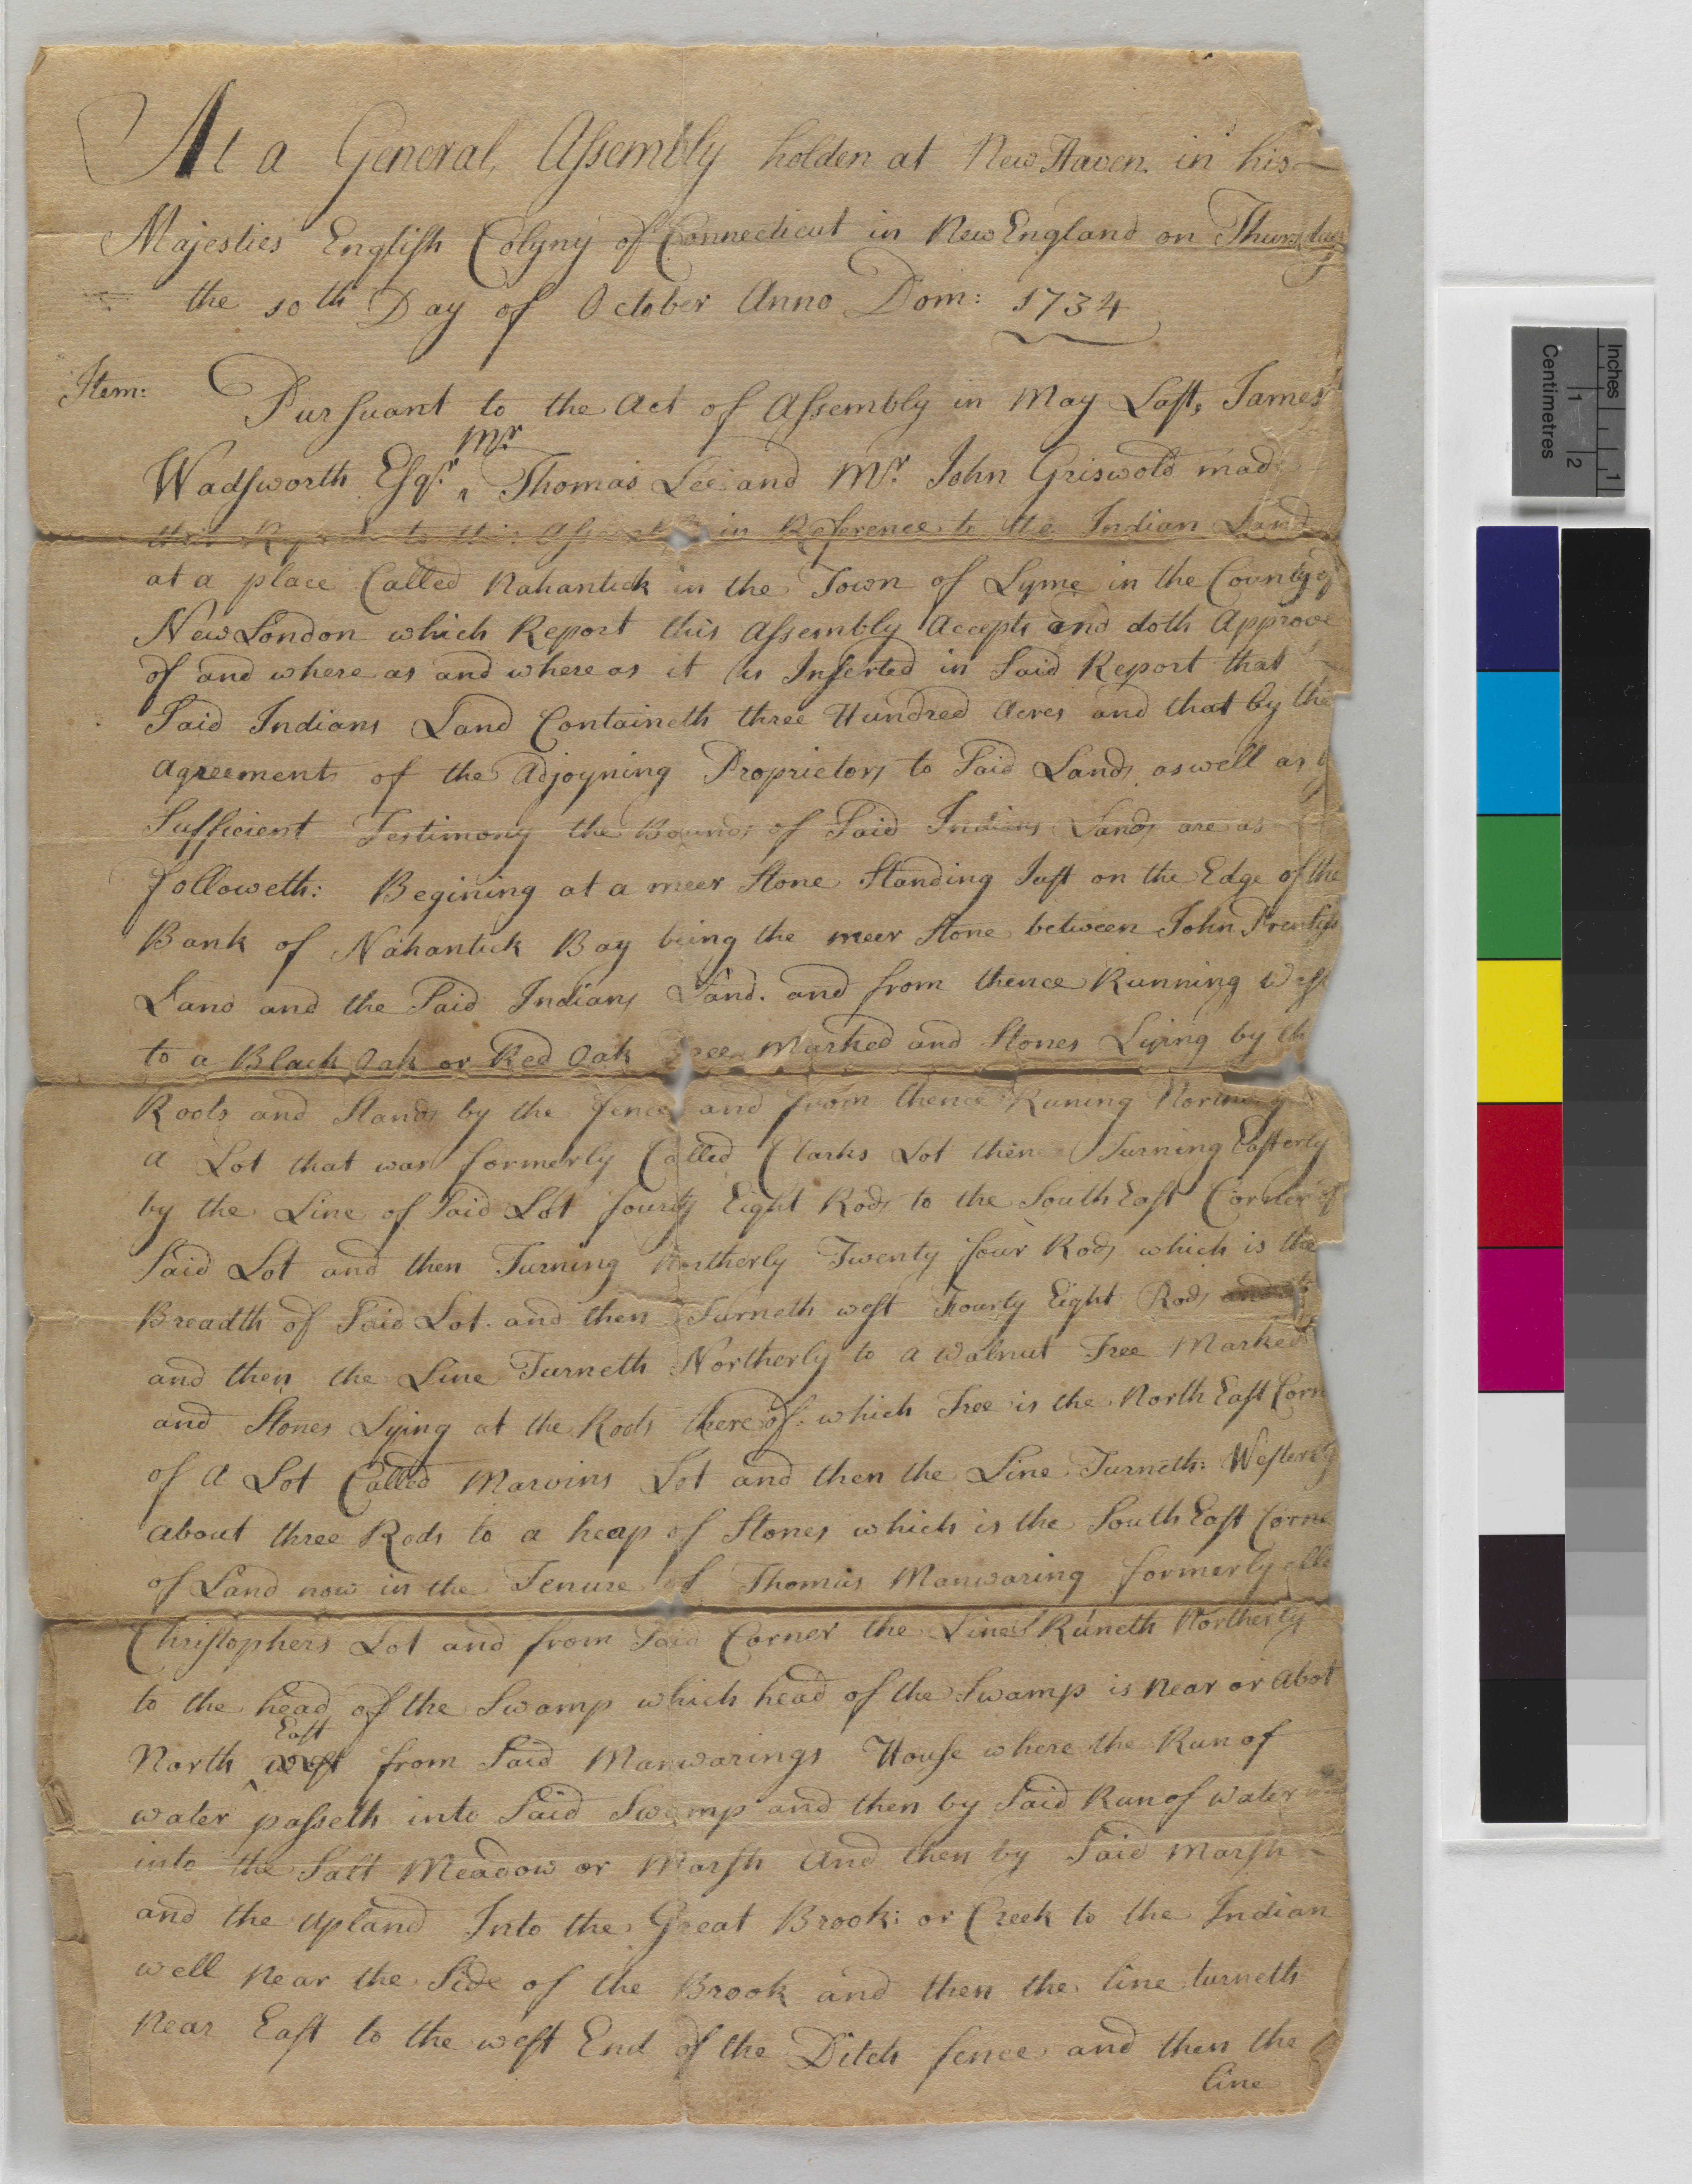 At a General Assembly holden at New Haven in his
Majesties English Colony of Connecticut in New England on Thursday
the 10th Day of October Anno Dom: 1734
Item: Pursuant to the Act of Assembly in May Last, James
Wadsworth Esqr. Mr Thomas Lee and Mr. John Griswold mad
their Report to this Assembly in Reference to the Indian Land
at a place Called Nahantick in the Town of Lyme in the County of
New London which Report this Assembly Accepts and doth Approve
of and where as and where as it is Inserted in Said Report that
Said Indians Land Containeth three Hundred Acres and that by the
agreements of the Adjoyning Proprietors to Said Lands aswell as
Sufficient Testimony the Bounds of Said Indians Lands are as
followeth: Begining at a meer Stone Standing Just on the Edge of the
Bank of Nahantick Bay being the meer Stone between John Prentiss
Land and the Said Indians Land. and from thence Running West
to a Black Oak or Red Oak Tree Marked and Stones Lying by th
Roots and Stands by the fence and from thence Runing
a Lot that was formerly Called Clarks Lot then Turning Easterly
by the Line of Said Lot fourty Eight Rods to the South East Corner of
Said Lot and then Turning Northerly Twenty four Rods which is the
Breadth of Said Lot. and then Turneth west Fourty Eight Rods
and then the Line Turneth Northerly to a Walnut Tree Marked
and Stones Lying at the Roots thereof. which Tree is the North East Corn
of A Lot Called Marvins Lot and then the Line Turneth: Westerly
about three Rods to a heap of Stones which is the South East Corne
of Land now in the Tenure of Thomas Manwaring formerly
Christophers Lot and from Said Corner the Line Runeth Northerly
to the head of the Swamp which head of the Swamp is near or Abot
North west East from Said Manwarings House where the Run of
water passeth into Said Swamp and then by Said Run of water
into the Salt Meadow or Marsh And then by Said Marsh
and the upland Into the Great Brook: or Creek to the Indian
well near the Side of the Brook and then the line turneth
near East to the west End of the Ditch fence and then the
line